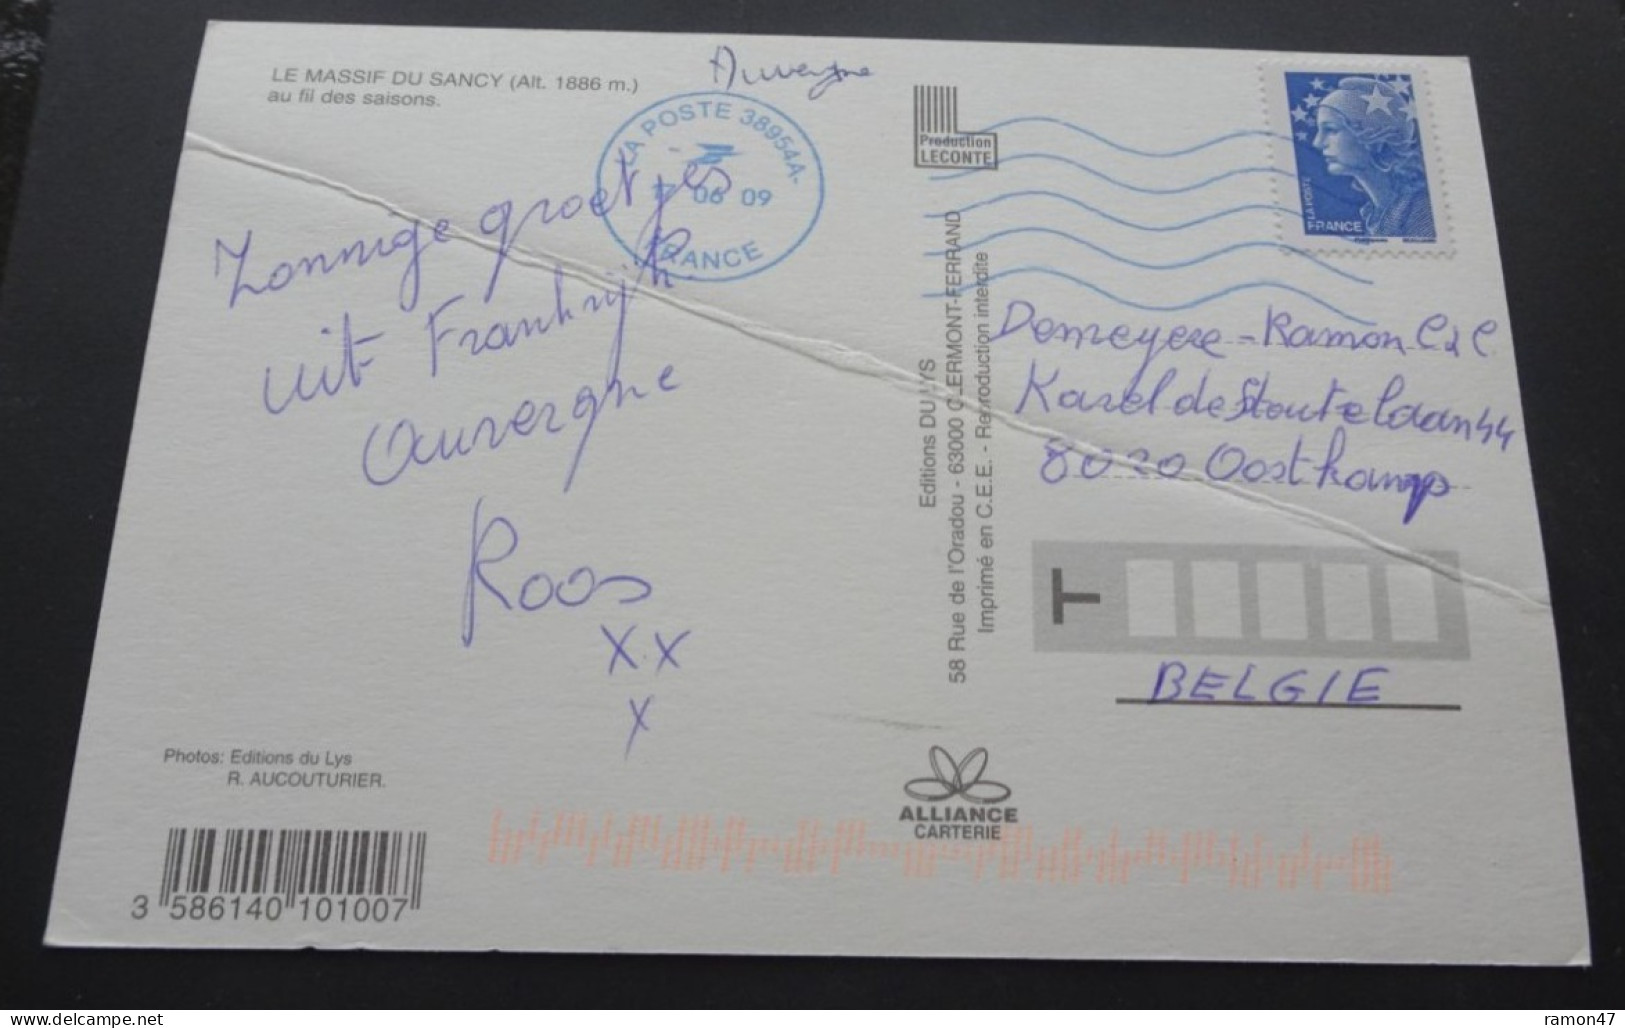 LE MASSIF DU SANCY (Alt. 1886 m.)
au fil des saisons.
Auvergne
LA POSTE 38954A-
06 09
FRANCE
Zonnige groetjes
uit Frankrijk
Auvergne
Roos
XX
X
Photos: Editions du Lys
R. AUCOUTURIER.
3 586140 101007
Production
LECONTE
Editions DU LYS
58 Rue de l'Oradou - 63000 CLERMONT-FERRAND
Imprimé en C.E.E. - Reproduction interdite
LA POSTE
FRANCE
Demeyere - Ramon C & C
Karel de Stoutelaan 44
8020 Oostkamp
T
BELGIE
ALLIANCE
CARTERIE
ramon47